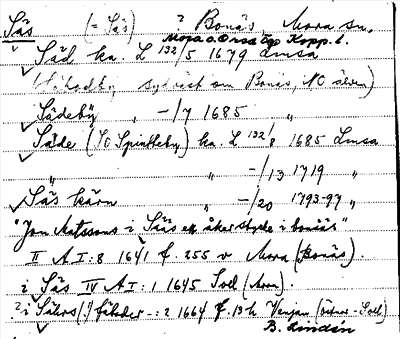 Säs (= Säs) ? Bonäs, Mora sn,
Mora o. Orsa tgs Kopp. l.
Säd ka. L 132/5 1679 Lmsa
( sydväst om Bonäs, NO älven)
Sädeby " -/7 1685 "
Säde (SO Spintleby) ka. L 132/8 1685 Lmsa
" " -/13 1719 "
Säs kärn " -/20 1793-97 "
"Jon Matssons i Sääs åkerstycke i bonääs"
II A I:8 1641 f. 255 v Mora (Bonäs).
i Säs IV A I:1 1645 Soll (Mora).
? i Sähos (!) fäboder -:2 1664 f. 13 h Venjan (Soll.)
B. Lindén